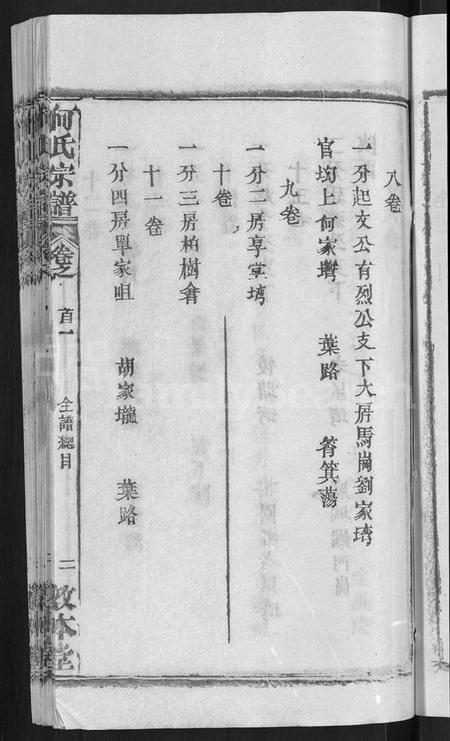 八卷
一分起文公有烈公支下大房馬崗劉家塆
官塆上何家塆 葉路 筲箕蕩
九卷
一分二房享堂塆
十卷
一分三房柏樹
十一卷
一分四房單家咀 胡家壠 葉路
何氏宗譜
卷之首一
全譜總目
二
敦本堂